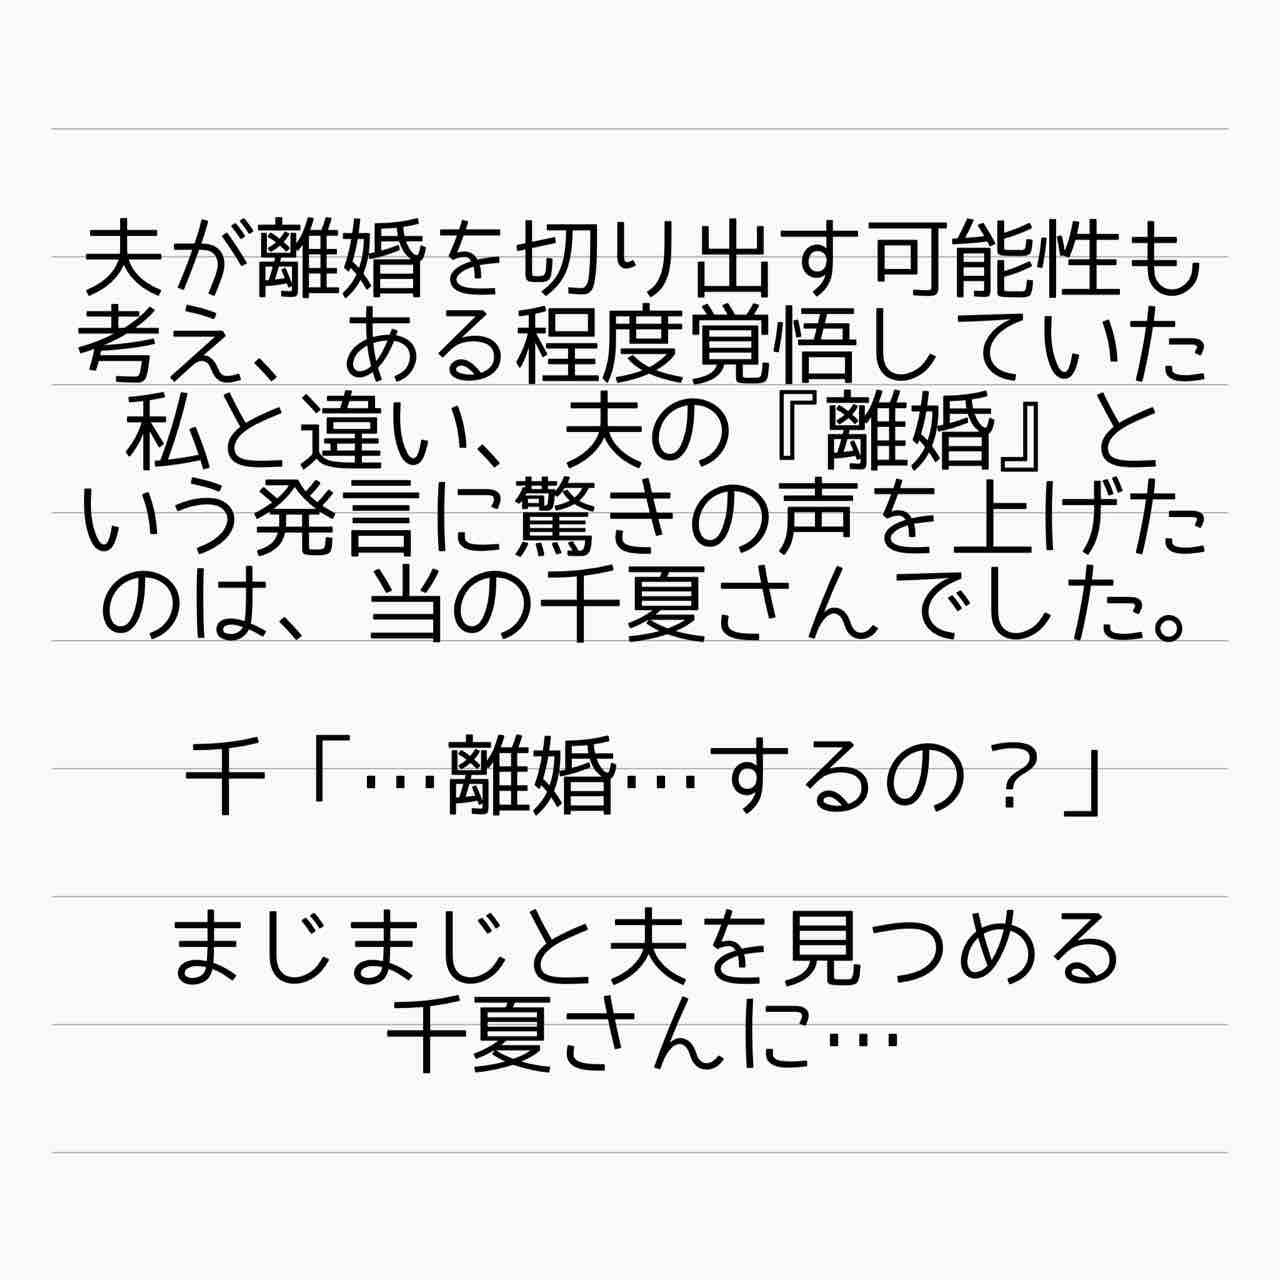 夫が離婚を切り出す可能性も
考え、ある程度覚悟していた
私と違い、夫の『離婚』と
いう発言に驚きの声を上げた
のは、当の千夏さんでした。
千「…離婚…するの？」
まじまじと夫を見つめる
千夏さんに…